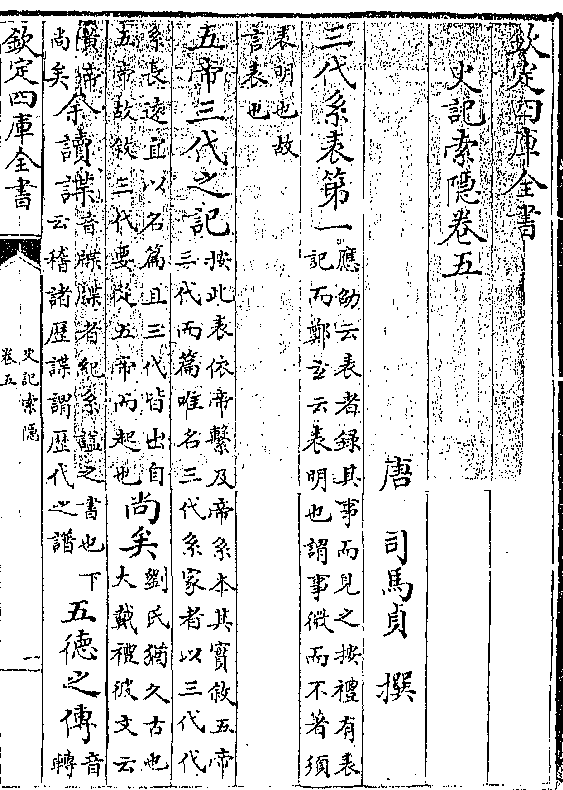 欽定四庫全書
史記索隱卷五
唐 司馬貞 撰
三代系表第一應劭云表者錄其事而見之按禮有表
記而鄭玄云表明也謂事微而不著須
表明也故
言表也
五帝三代之記按此表依帝繫及帝系本其實敘五帝
三代而篇唯名三代系家者以三代代
系長遠宜以名篇且三代皆出自
五帝故敘三代要從五帝而起也尚矣劉氏猶久古也
大戴禮彼文云
黃帝
尚矣余讀諜音牒牒者紀系謚之書也下
云稽諸歷諜謂歷代之譜五德之傳音
轉
欽定四庫全書
史記索隱
卷五
一